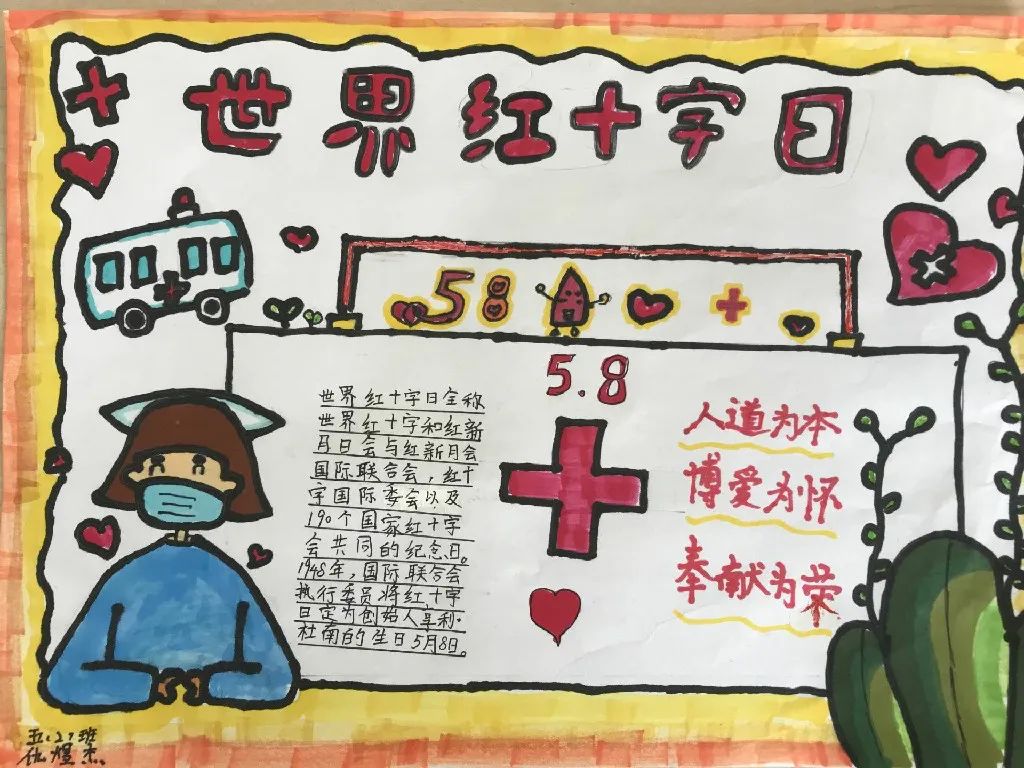 世界红十字日
58
5.8
世界红十字日全称
世界红十字和红新
月日会与红新月会
国际联合会，红十
字国际委会以及
190个国家红十字
会共同的纪念日。
1948年，国际联合会
执行委员将红十字
日定为创始人享利·
杜南的生日5月8日。
人道为本
博爱为怀
奉献为荣